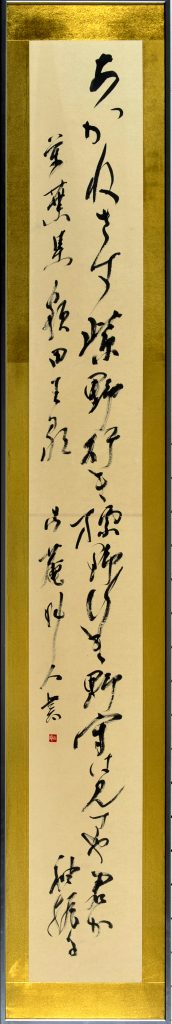 あかねさす紫野行き標野行き野守は見すや君か
袖振る
萬葉集 額田王歌 人書